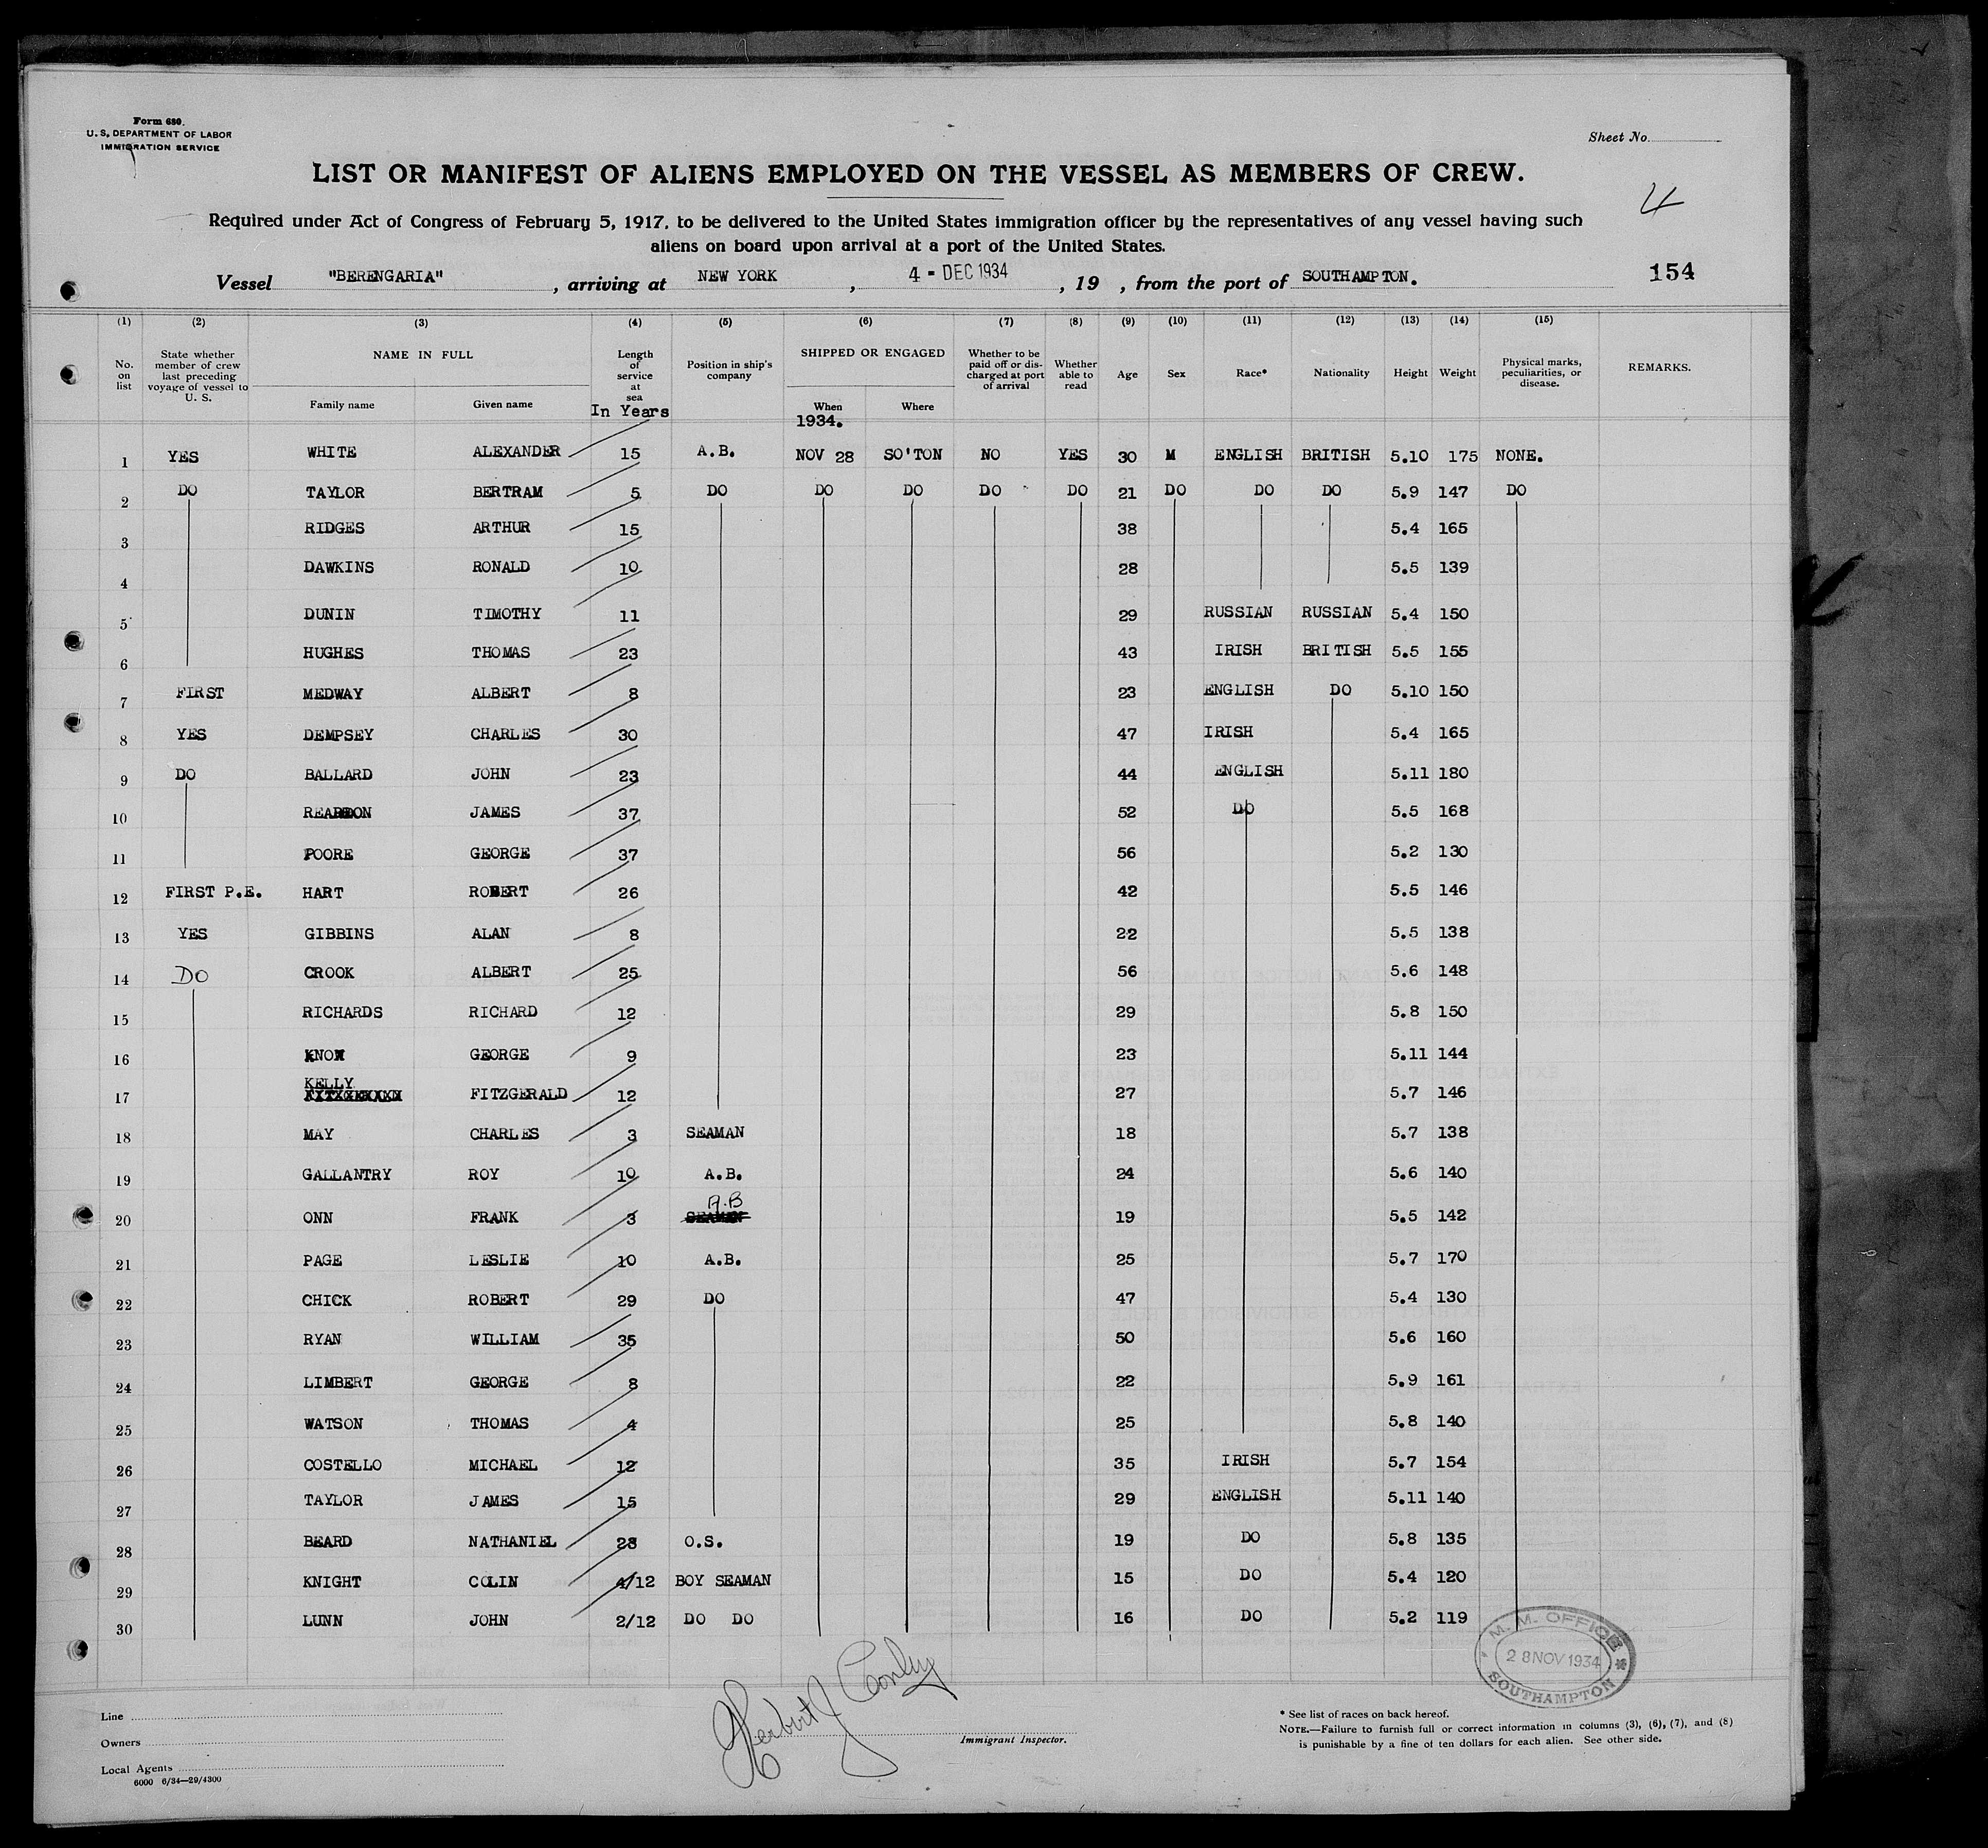 Form 680.
U. S. DEPARTMENT OF LABOR
IMMIGRATION SERVICE
Sheet No.
LIST OR MANIFEST OF ALIENS EMPLOYED ON THE VESSEL AS MEMBERS OF CREW.
4
Required under Act of Congress of February 5, 1917, to be delivered to the United States immigration officer by the representatives of any vessel having such
aliens on board upon arrival at a port of the United States.
Vessel "BERENGARIA" , arriving at NEW YORK , 4 - DEC 1934 , 19 , from the port of SOUTHAMPTON. 154
(1) (2) (3) (4) (5) (6) (7) (8) (9) (10) (11) (12) (13) (14) (15)
No. on list State whether member of crew last preceding voyage of vessel to U. S. NAME IN FULL Family name Given name Length of service at sea In Years Position in ship's company SHIPPED OR ENGAGED When 1934. Where Whether to be paid off or discharged at port of arrival Whether able to read Age Sex Race* Nationality Height Weight Physical marks, peculiarities, or disease. REMARKS.
1 YES WHITE ALEXANDER 15 A.B. NOV 28 SO'TON NO YES 30 M ENGLISH BRITISH 5.10 175 NONE.
2 DO TAYLOR BERTRAM 5 DO DO DO DO DO 21 DO DO DO 5.9 147 DO
3 RIDGES ARTHUR 15 38 5.4 165
4 DAWKINS RONALD 10 28 5.5 139
5 DUNIN TIMOTHY 11 29 RUSSIAN RUSSIAN 5.4 150
6 HUGHES THOMAS 23 43 IRISH BRITISH 5.5 155
7 FIRST MEDWAY ALBERT 8 23 ENGLISH DO 5.10 150
8 YES DEMPSEY CHARLES 30 47 IRISH 5.4 165
9 DO BALLARD JOHN 23 44 ENGLISH 5.11 180
10 REARDON JAMES 37 52 DO 5.5 168
11 POORE GEORGE 37 56 5.2 130
12 FIRST P.E. HART ROBERT 26 42 5.5 146
13 YES GIBBINS ALAN 8 22 5.5 138
14 DO CROOK ALBERT 25 56 5.6 148
15 RICHARDS RICHARD 12 29 5.8 150
16 GEORGE 9 23 5.11 144
17 KELLY FITZGERALD 12 27 5.7 146
18 MAY CHARLES 3 SEAMAN 18 5.7 138
19 GALLANTRY ROY 10 A.B. 24 5.6 140
20 ONN FRANK 3 A.B SEAMAN 19 5.5 142
21 PAGE LESLIE 10 A.B. 25 5.7 170
22 CHICK ROBERT 29 DO 47 5.4 130
23 RYAN WILLIAM 35 50 5.6 160
24 LIMBERT GEORGE 8 22 5.9 161
25 WATSON THOMAS 4 25 5.8 140
26 COSTELLO MICHAEL 12 35 IRISH 5.7 154
27 TAYLOR JAMES 15 29 ENGLISH 5.11 140
28 BEARD NATHANIEL O.S. 19 DO 5.8 135
29 KNIGHT COLIN 4/12 BOY SEAMAN 15 DO 5.4 120
30 LUNN JOHN 2/12 DO DO 16 DO 5.2 119
M. M. OFFICE
28 NOV 1934
SOUTHAMPTON
Herbert J Conley
Immigrant Inspector.
Line
Owners
Local Agents
6000 6/34—29/4300
* See list of races on back hereof.
NOTE.—Failure to furnish full or correct information in columns (3), (6), (7), and (8)
is punishable by a fine of ten dollars for each alien. See other side.